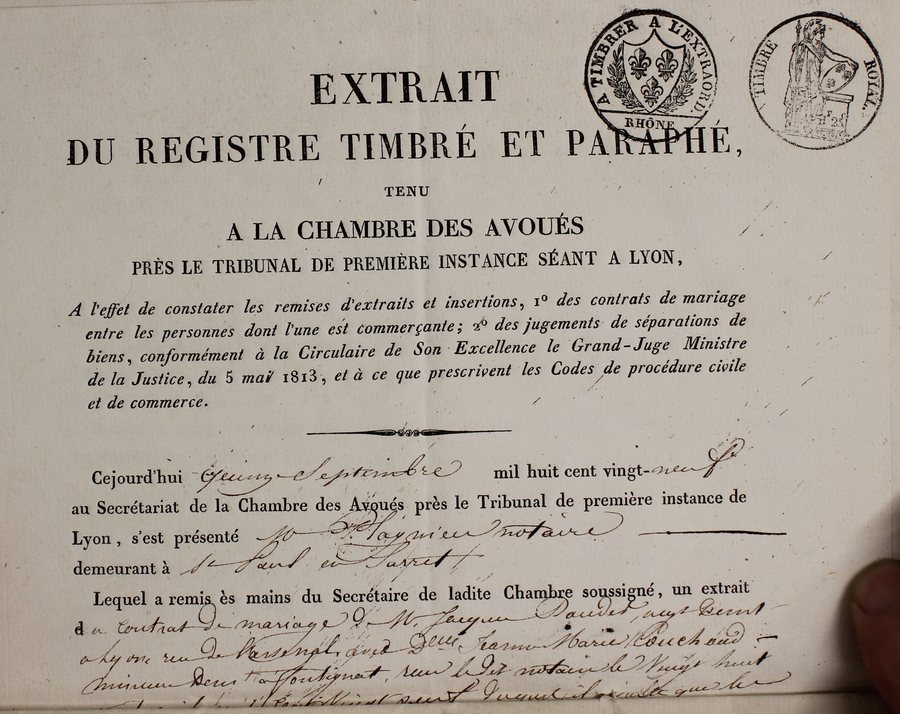 A TIMBRER A L'EXTRAORD.
RHÔNE
TIMBRE ROYAL.
EXTRAIT
DU REGISTRE TIMBRÉ ET PARAPHÉ,
TENU
A LA CHAMBRE DES AVOUÉS
PRÈS LE TRIBUNAL DE PREMIÈRE INSTANCE SÉANT A LYON,
A l'effet de constater les remises d'extraits et insertions, 1º des contrats de mariage
entre les personnes dont l'une est commerçante; 2º des jugements de séparations de
biens, conformément à la Circulaire de Son Excellence le Grand-Juge Ministre
de la Justice, du 5 mai 1813, et à ce que prescrivent les Codes de procédure civile
et de commerce.
Cejourd'hui quinze Septembre mil huit cent vingt-neuf
au Secrétariat de la Chambre des Avoués près le Tribunal de première instance de
Lyon, s'est présenté notaire
demeurant à St Paul en Jarret
Lequel a remis ès mains du Secrétaire de ladite Chambre soussigné, un extrait
d contrat de mariage de Mr Jacques
a Lyon rue de avec Delle Jeanne Marie
mineure a reçu le dit notaire le Vingt huit
que les